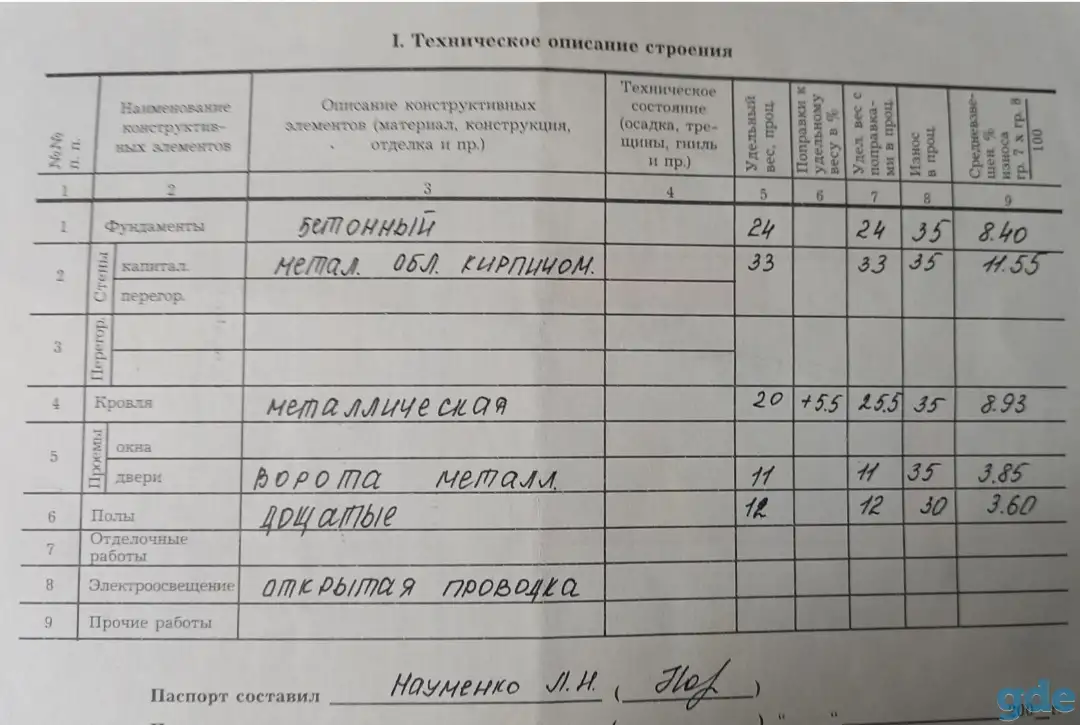 I. Техническое описание строения
№№ п. п. | Наименование конструктив- ных элементов | Описание конструктивных элементов (материал, конструкция, отделка и пр.) | Техническое состояние (осадка, тре- щины, гниль и пр.) | Удельный вес, проц. | Поправки к удельному весу в % | Удел. вес с поправка- ми в проц. | Износ в проц. | Средневзве- шен. % износа гр. 7 х гр. 8 100
1 2 3 4 5 6 7 8 9
1 Фундаменты бетонный 24 24 35 8.40
2 Стены капитал. метал. обл. кирпичом. 33 33 35 11.55
перегор.
3 Перегор.
4 Кровля металлическая 20 +5.5 25.5 35 8.93
5 Проемы окна
двери ворота металл. 11 11 35 3.85
6 Полы дощатые 12 12 30 3.60
7 Отделочные
работы
8 Электроосвещение открытая проводка
9 Прочие работы
Паспорт составил Науменко Л.Н. ( )
gde